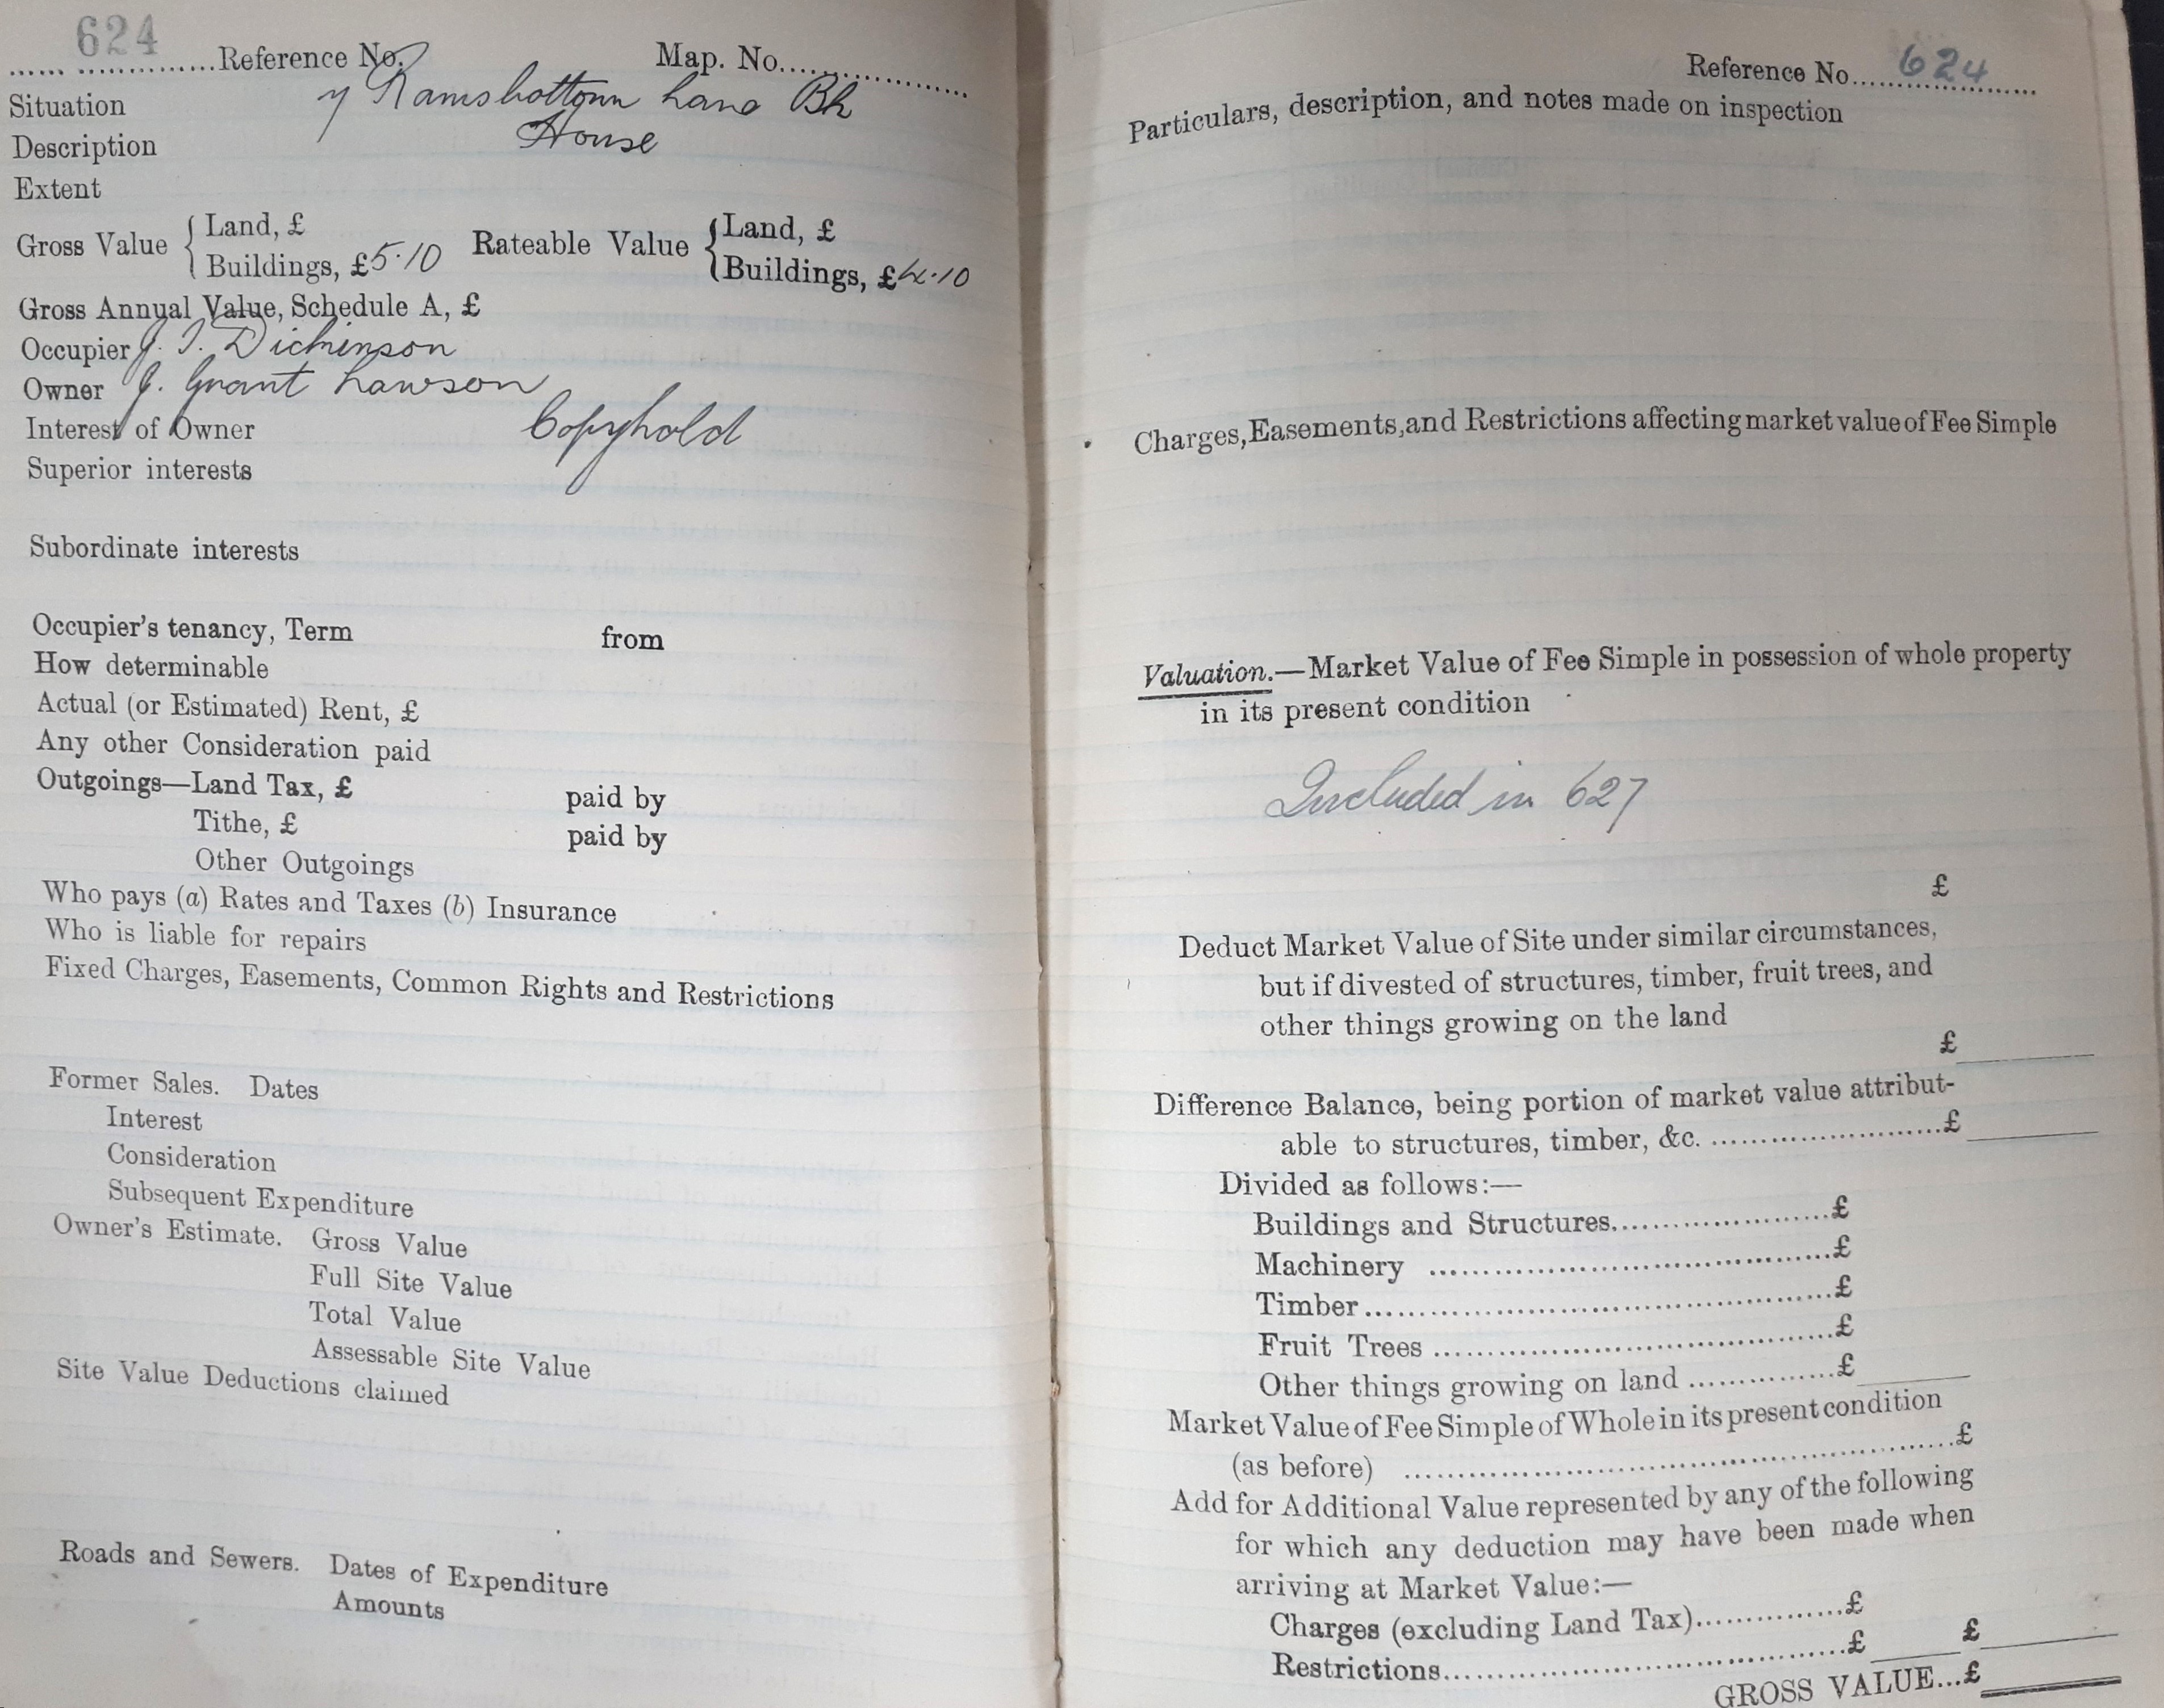 624
Reference No. Map. No.
Situation 7 Ramsbottom Lane Bk
Description House
Extent
Gross Value { Land, £ Rateable Value { Land, £
Buildings, £5.10 Buildings, £4.10
Gross Annual Value, Schedule A, £
Occupier J. T. Dickinson
Owner J. Grant Lawson
Interest of Owner Copyhold
Superior interests
Subordinate interests
Occupier's tenancy, Term from
How determinable
Actual (or Estimated) Rent, £
Any other Consideration paid
Outgoings—Land Tax, £ paid by
Tithe, £ paid by
Other Outgoings
Who pays (a) Rates and Taxes (b) Insurance
Who is liable for repairs
Fixed Charges, Easements, Common Rights and Restrictions
Former Sales. Dates
Interest
Consideration
Subsequent Expenditure
Owner's Estimate. Gross Value
Full Site Value
Total Value
Assessable Site Value
Site Value Deductions claimed
Roads and Sewers. Dates of Expenditure
Amounts
Reference No. 624
Particulars, description, and notes made on inspection
Charges, Easements, and Restrictions affecting market value of Fee Simple
Valuation.—Market Value of Fee Simple in possession of whole property
in its present condition
Included in 627
£
Deduct Market Value of Site under similar circumstances,
but if divested of structures, timber, fruit trees, and
other things growing on the land
£
Difference Balance, being portion of market value attribut-
able to structures, timber, &c. ........................£
Divided as follows:—
Buildings and Structures........................£
Machinery ........................£
Timber........................£
Fruit Trees ........................£
Other things growing on land ...............£
Market Value of Fee Simple of Whole in its present condition
(as before) ........................£
Add for Additional Value represented by any of the following
for which any deduction may have been made when
arriving at Market Value:—
Charges (excluding Land Tax)...............£
Restrictions........................£ £
GROSS VALUE...£